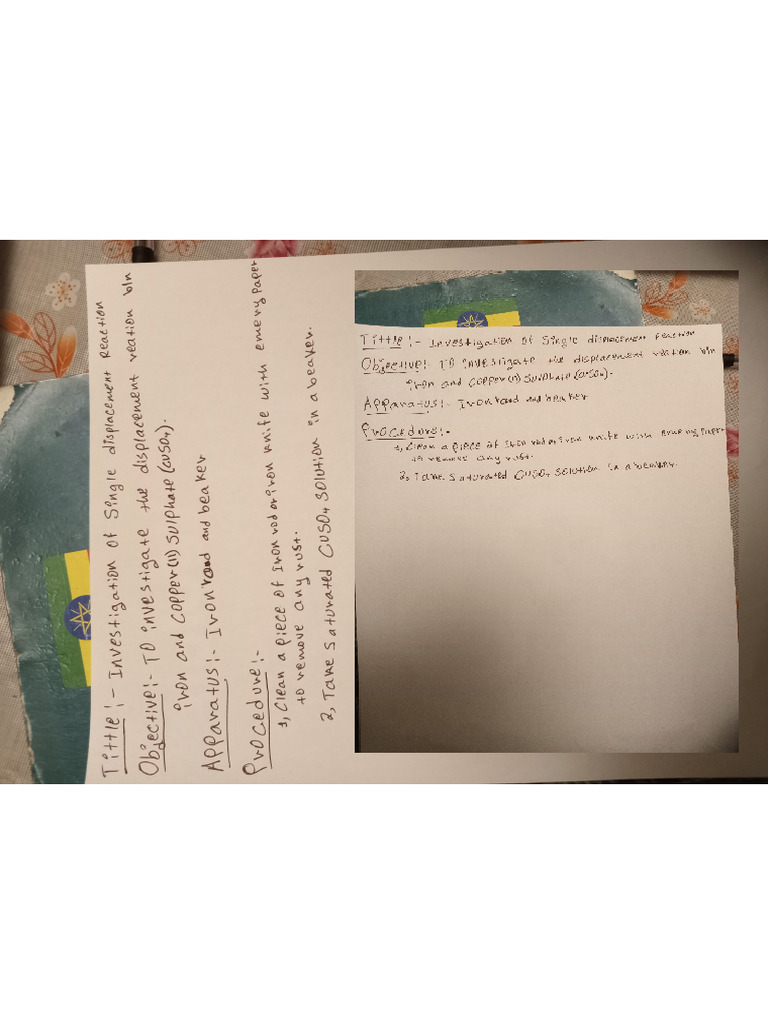 Tittle:- Investigation of Single displacement Reaction
Objective:- TO investigate the displacement reation b/n
iron and copper(II) sulphate (CuSO4).
Apparatus:- Iron rod and beaker
Procedure:-
1, Clean a piece of Iron rod or iron knife with emery paper
to remove any rust.
2, Take saturated CuSO4 solution in a beaker.
Tittle:- Investigation of Single displacement Reaction
Objective:- TO investigate the displacement reation b/n
iron and copper(II) sulphate (CuSO4).
Apparatus:- Iron rod and beaker
Procedure:-
1, Clean a piece of Iron rod or iron knife with emery paper
to remove any rust.
2, Take saturated CuSO4 solution in a beaker.